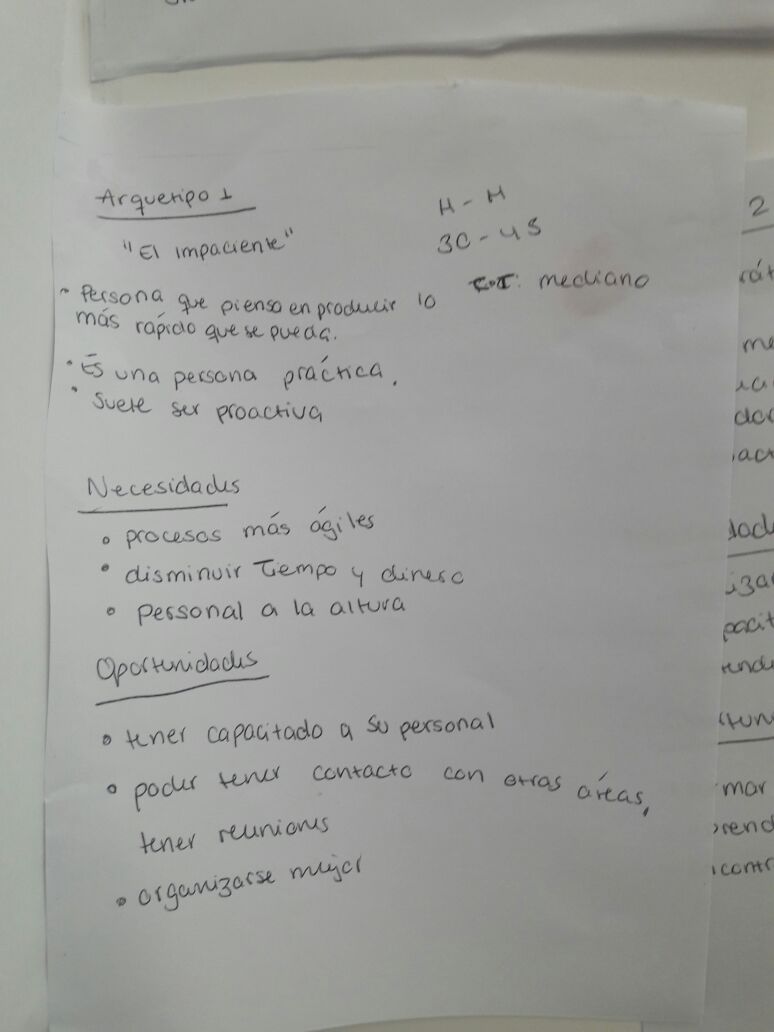 Arquetipo 1
"El impaciente"
H - M
30 - 45
mediano
• Persona que piensa en producir lo
más rápido que se pueda.
• Es una persona práctica.
• Suele ser proactiva
Necesidades
• procesos más ágiles
• disminuir tiempo y dinero
• personal a la altura
Oportunidades
• tener capacitado a su personal
• poder tener contacto con otras áreas,
tener reuniones
• organizarse mejor
2